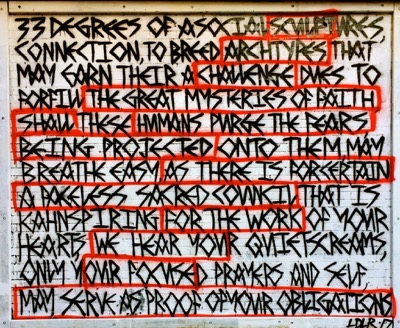 33 DEGREES OF ASOCIAL SCULPTURES,
CONNECTION, TO BREED ARCHTYPES THAT
MAY EARN THEIR A CHALLENGE DUES TO
THE GREAT MYSTERIES OF FAITH
SHALL THESE HUMANS PURGE THE FEARS
BEING PROJECTED ONTO THEM MAY
BREATHE EASY AS THERE IS FORCERTAIN
A FACELESS SACRED COUNCIL THAT IS
FOR THE WORK OF YOUR
HEARTS, WE HEAR YOUR QUIETSCREAMS,
ONLY YOUR FOCUSED PRAYERS AND SELF,
MAY SERVE AS PROOF OF YOUR OBLIGATIONS